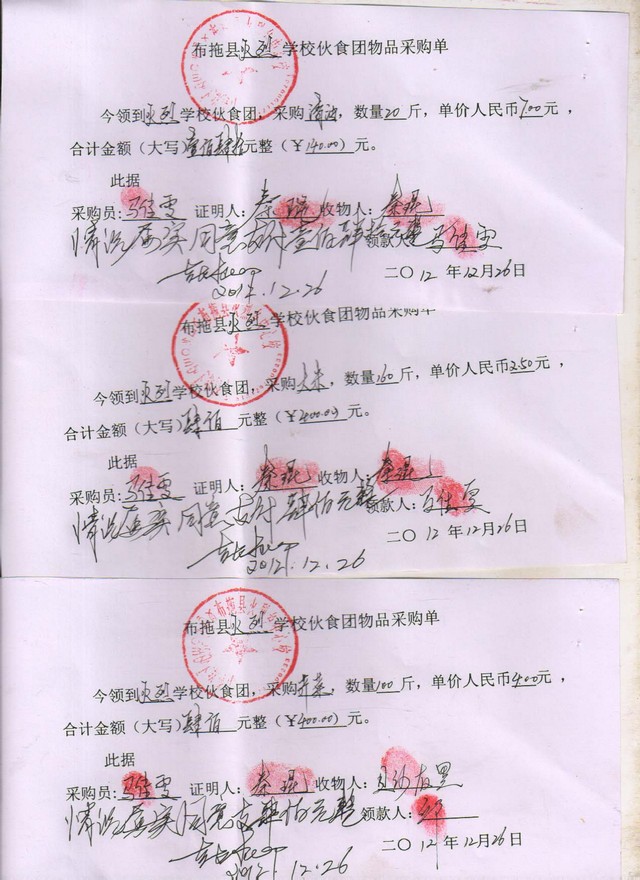 布拖县火烈学校伙食团物品采购单
今领到火烈学校伙食团，采购清油，数量20斤，单价人民币7.00元，
合计金额（大写）壹佰肆拾元整（￥140.00）元。
此据
采购员：马佳雯 证明人：秦琨 收物人：秦琨
情况属实 同意支付壹佰肆拾元整 领款人：马佳雯
2012.12.26
二〇12年12月26日
布拖县火烈学校伙食团物品采购单
今领到火烈学校伙食团，采购大米，数量160斤，单价人民币2.50元，
合计金额（大写）肆佰元整（￥400.00）元。
此据
采购员：马佳雯 证明人：秦琨 收物人：秦琨
情况属实 同意支付肆佰元整 领款人：马佳雯
2012.12.26
二〇12年12月26日
布拖县火烈学校伙食团物品采购单
今领到火烈学校伙食团，采购，数量100斤，单价人民币4.00元，
合计金额（大写）肆佰元整（￥400.00）元。
此据
采购员：马佳雯 证明人：秦琨 收物人：
情况属实 同意支肆佰元整 领款人：
2012.12.26
二〇12年12月26日